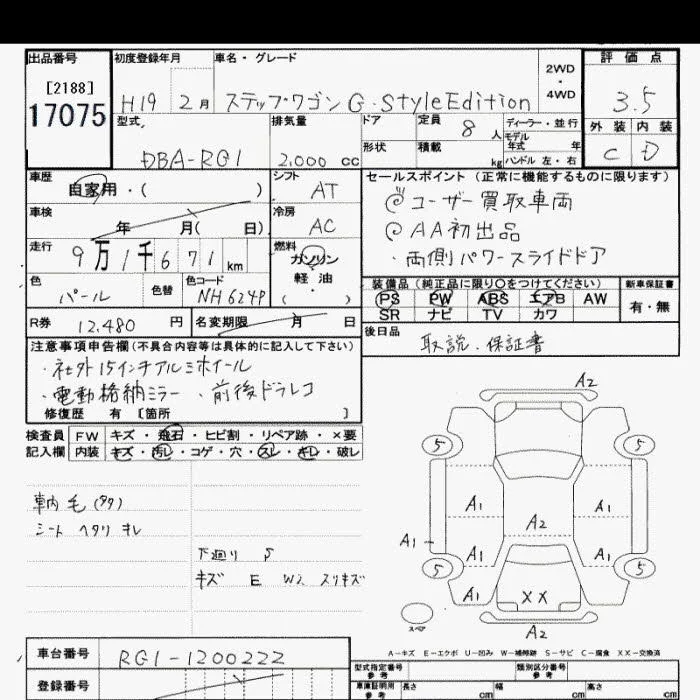 出品番号 初度登録年月 車名・グレード 評価点
[2188]
17075
H19 2月 ステップワゴン G・StyleEdition 2WD・4WD 3.5
型式 排気量 ドア 定員 8人 ディーラー・並行 外装 内装
DBA-RG1 2,000 cc 形状 積載 kg モデル年式 年 ハンドル 左・右 C D
車歴 自家用・( ) シフト AT セールスポイント (正常に機能するものに限ります)
車検 年 月( 日) 冷房 AC ユーザー買取車両
AA初出品
走行 9万1千671km 燃料 ガソリン 軽油 ( ) ・両側パワースライドドア
色 パール 色替 色コード NH624P 装備品(純正品に限り○をつけてください) 新車保証書
PS PW ABS エアB AW 有・無
SR ナビ TV カワ
R券 12,480円 名変期限 月 日 後日品
取説・保証書
注意事項申告欄(不具合内容等は具体的に記入して下さい)
・社外15インチアルミホイール
・電動格納ミラー ・前後ドラレコ
修復歴 有 [箇所 ]
検査員 FW キズ・飛石・ヒビ割・リペア跡・×要
記入欄 内装 キズ・汚レ・コゲ・穴・スレ・キレ・破レ
車内毛(タタ)
シート ヘタリ キレ
下廻り S
キズ E W2 スリキズ
A2
5 5
A1 A1
A2
A1 A1 A1
5 5
A1 A1
XX
スペア
A2
A-キズ E-エクボ U-凹み W-補修跡 S-サビ C-腐食 XX-交換済
車台番号 RG1-1200222
登録番号
型式指定番号 参考 類別区分番号 参考
車庫証明用 参考 長さ cm 幅 cm 高さ cm